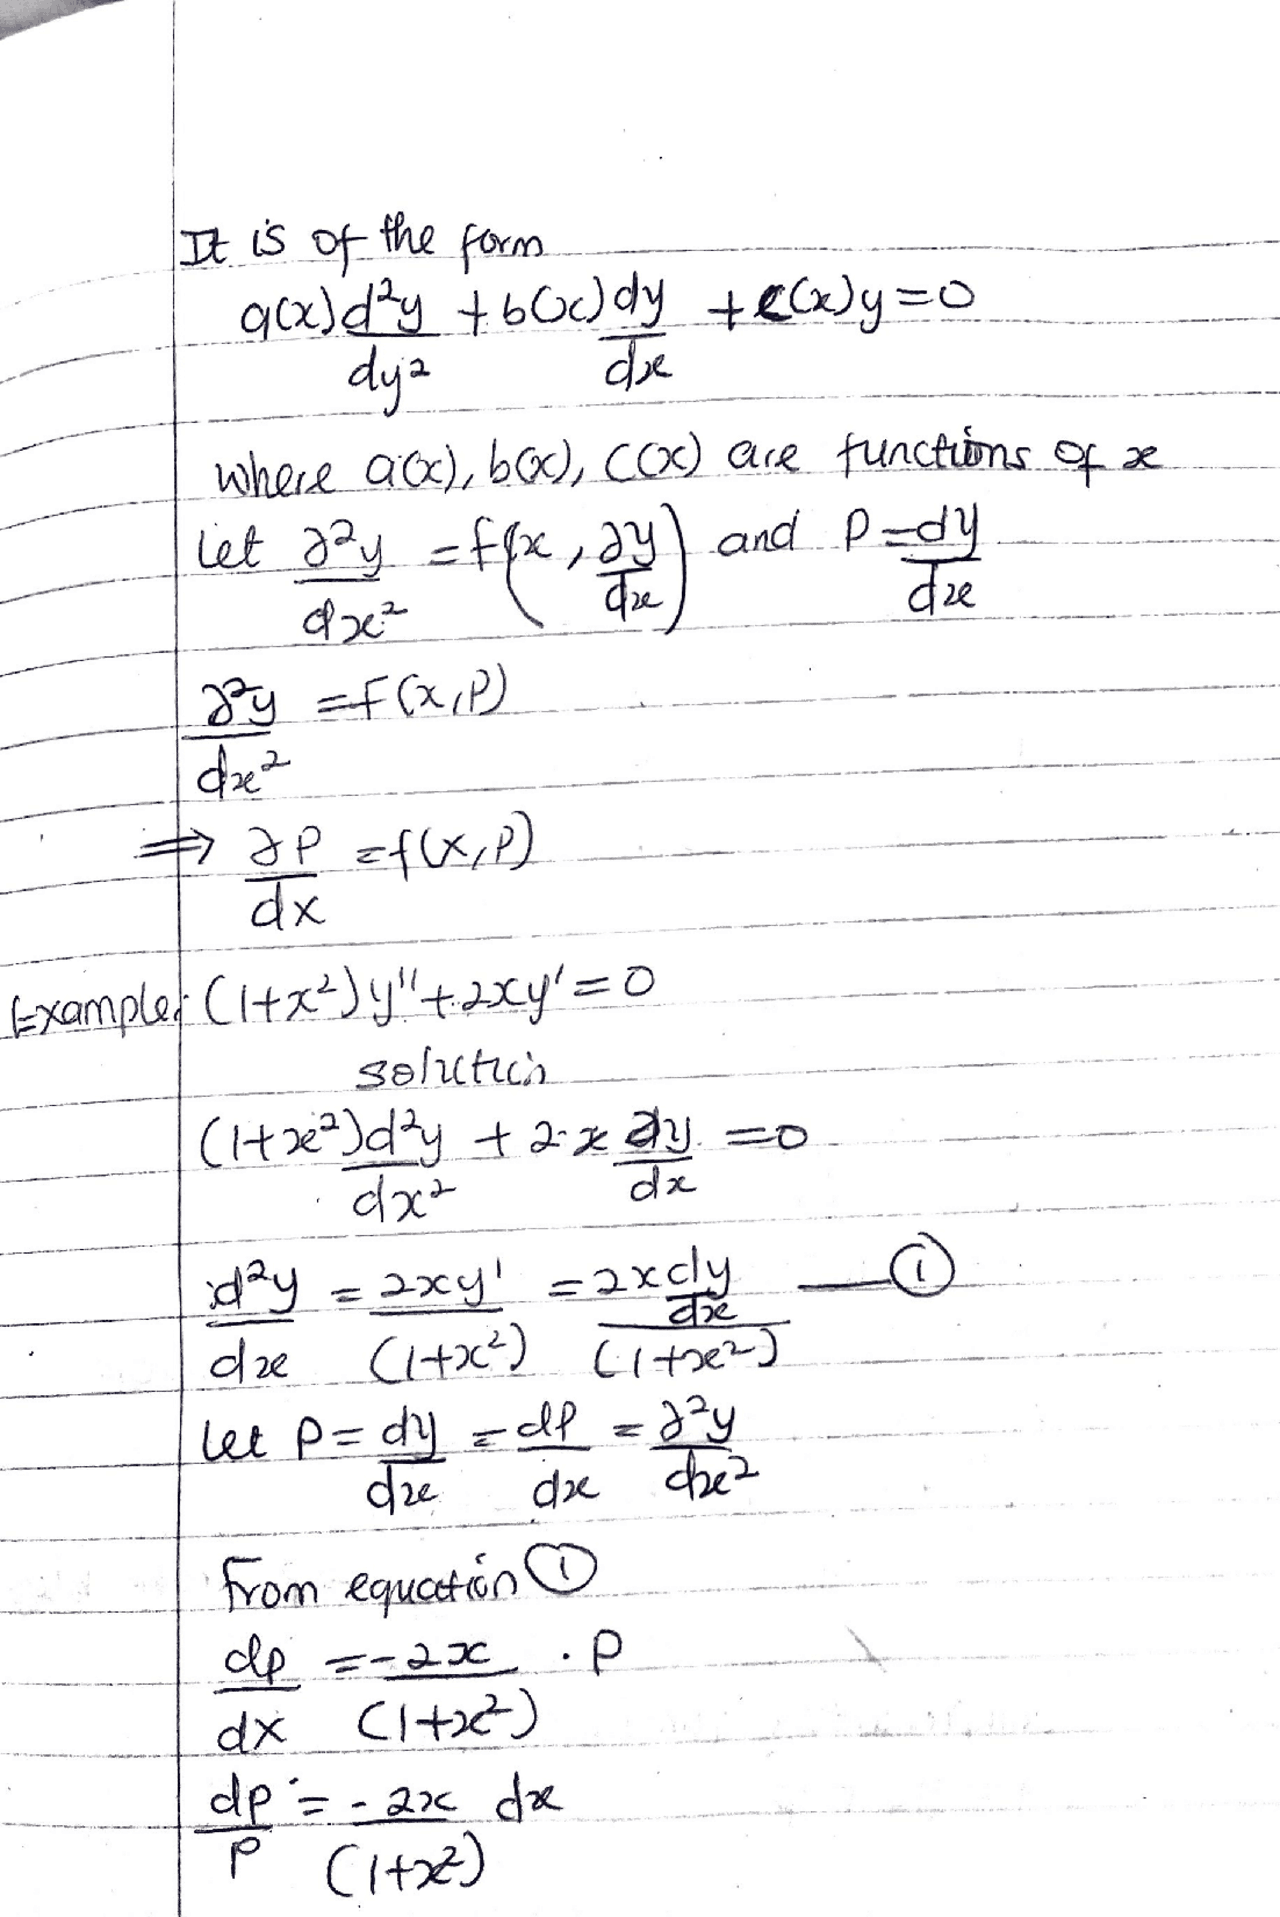 It is of the form
a(x) d²y/dy² + b(x) dy/dx + c(x)y = 0
where a(x), b(x), c(x) are functions of x
Let ∂²y/dx² = f(x, ∂y/dx) and P = dy/dx
∂²y/dx² = f(x, P)
⇒ ∂P/dx = f(x, P)
Example: (1+x²)y'' + 2xy' = 0
solution
(1+x²) d²y/dx² + 2·x dy/dx = 0
d²y/dx = 2xy'/(1+x²) = 2x dy/dx/(1+x²) —— ①
Let P = dy/dx = dP/dx = ∂²y/dx²
From equation ①
dp/dx = -2x/(1+x²) · P
dp/P = -2x/(1+x²) dx